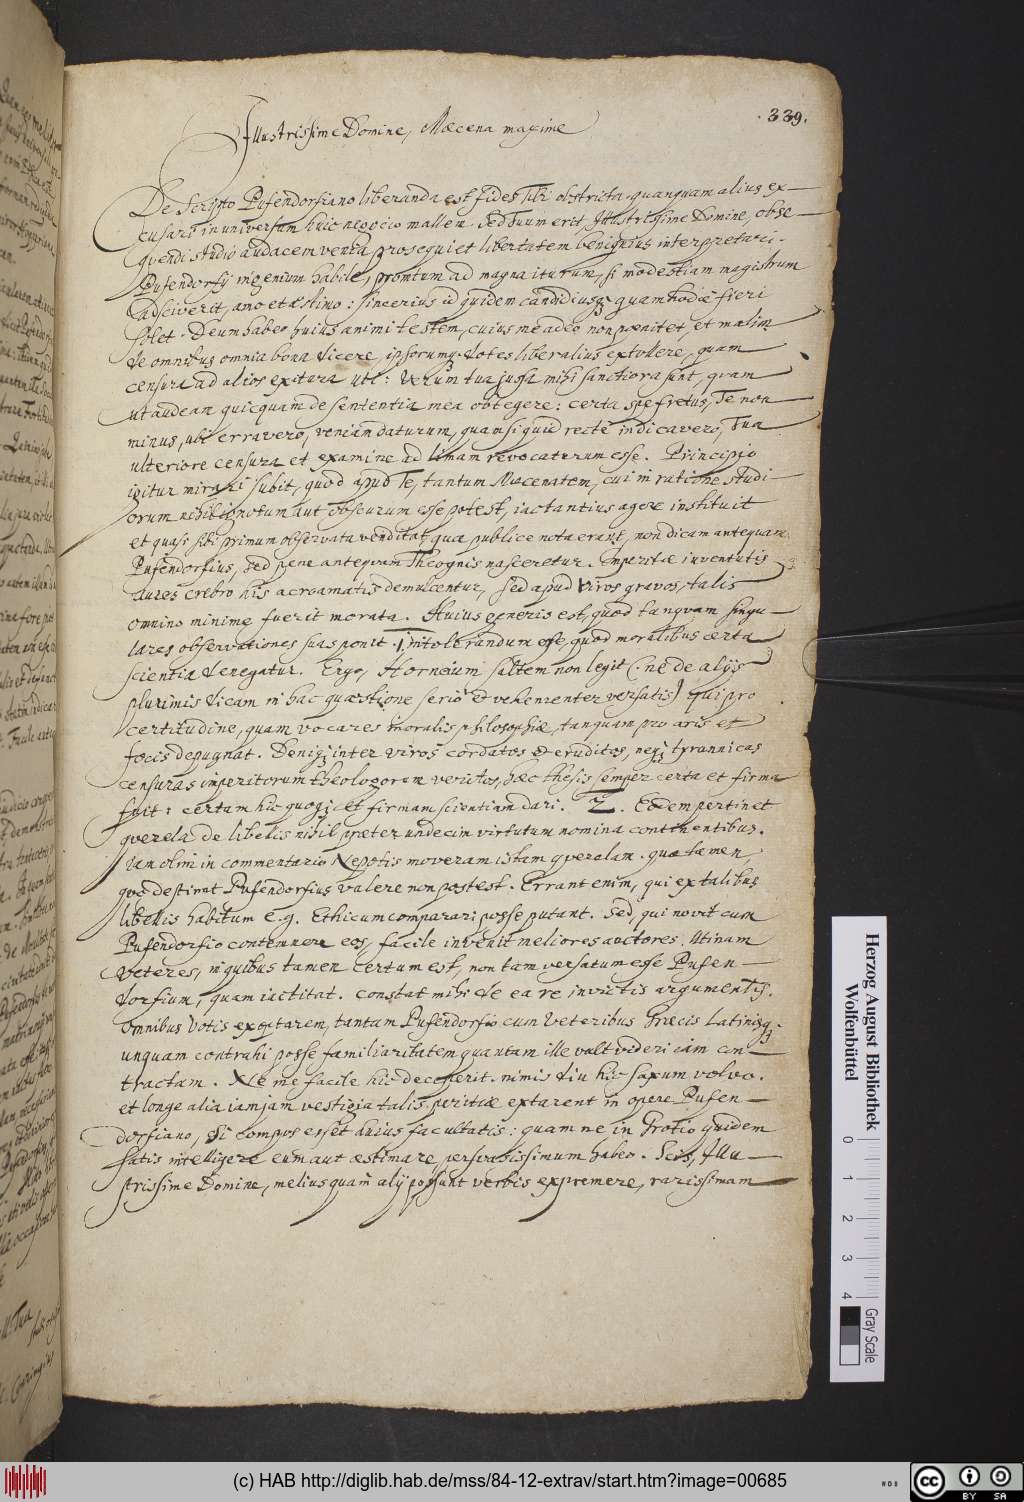 339.
Illustrissime Domine, Mæcena maxime
De Scripto Pufendorfiano liberanda est fides Tibi obstricta. quanquam alius ex-
cusari in universum huic negocio mallem. sed Tuum erit, Illustrissime Domine, obse-
quendi studio audacem venia prosequi et libertatem benignius interpretari.
Pufendorfij ingenium habile, promtum ad magna iturum, si modestiam magistram
adsciverit, amo et æstimo: sincerius id quidem candidiusq; quam hodie fieri
solet. Deum habeo huius animi testem, cuius me adeo non pœnitet, et malim
de omnibus omnia bona dicere, ipsorumq; dotes liberalius extollere, quam
censura ad alios exitura uti: Verum tua jussa mihi sanctiora sunt, quam
ut audeam quicquam de sententia mea obtegere: certa spe fretus, Te non
minus, ubi erravero, veniam daturum, quam si quid recte indicavero, Tua
ulteriore censura et examine ad limam revocaturum esse. Principio
igitur mirari subit, quod apud Te, tantum Mæcenatem, cui in ratione studi-
orum nihil ignotum aut obscurum esse potest, iactantius agere instituit
et quasi sibi primum observata venditat, quæ publice nota erant, non dicam antequam
Pufendorfius, sed pene antequam Theognis nasceretur. Imperitæ iuventutis
aures crebro his acroamatis demulcentur, sed apud viros gravos, talis
omnino minime fuerit morata. Huius generis est, quod tanquam singu-
lares observationes suas ponit. 1, intolerandum esse, quod moralibus certa
scientia denegatur. Ergo, Horneium saltem non legit (: ne de alijs
plurimis dicam in hac quæstione serio et vehementer versatis) qui pro
certitudine, quam vocares moralis philosophiæ, tanquam pro aris et
focis depugnat. Deniq; inter viros cordatos et eruditos, neq; tyrannicas
censuras imperitorum theologorum veritos, hæc thesis semper certa et firma
fuit: certam hic quoq; et firmam scientiam dari. 2. Eodem pertinet
querela de libellis nihil præter undecim virtutum nomina continentibus.
Jam olim in commentario Nepotis moveram istam querelam. quæ tamen,
quo destinat Pufendorfius valere non potest. Errant enim, qui ex talibus
libellis habitum e.g. Ethicum comparari posse putant. Sed, qui novit cum
Pufendorfio contemnere eos, facile invenit meliores auctores. Utinam
veteres, in quibus tamen certum est, non tam versatum esse Pufen-
dorfium, quam iactitat. constat mihi de ea re invictis argumentis.
omnibus votis exoptarem, tantam Pufendorfio cum Veteribus Græcis Latinisq;
unquam contrahi posse familiaritatem quantam ille vult videri iam con-
tractam. Ne me facile hic deceperit. nimis diu hic saxum volvo.
et longe alia iamjam vestigia talis peritiæ extarent in opere Pufen-
dorfiano, si compos esset huius facultatis: quam ne in Grotio quidem
satis intelligere eum aut æstimare persvasissimum habeo. Scis, Illu-
strissime Domine, melius quam alij possunt verbis expremere, rarissimam
Herzog August Bibliothek
Wolfenbüttel
0 1 2 3 4
Gray Scale
(c) HAB http://diglib.hab.de/mss/84-12-extrav/start.htm?image=00685
cc BY SA